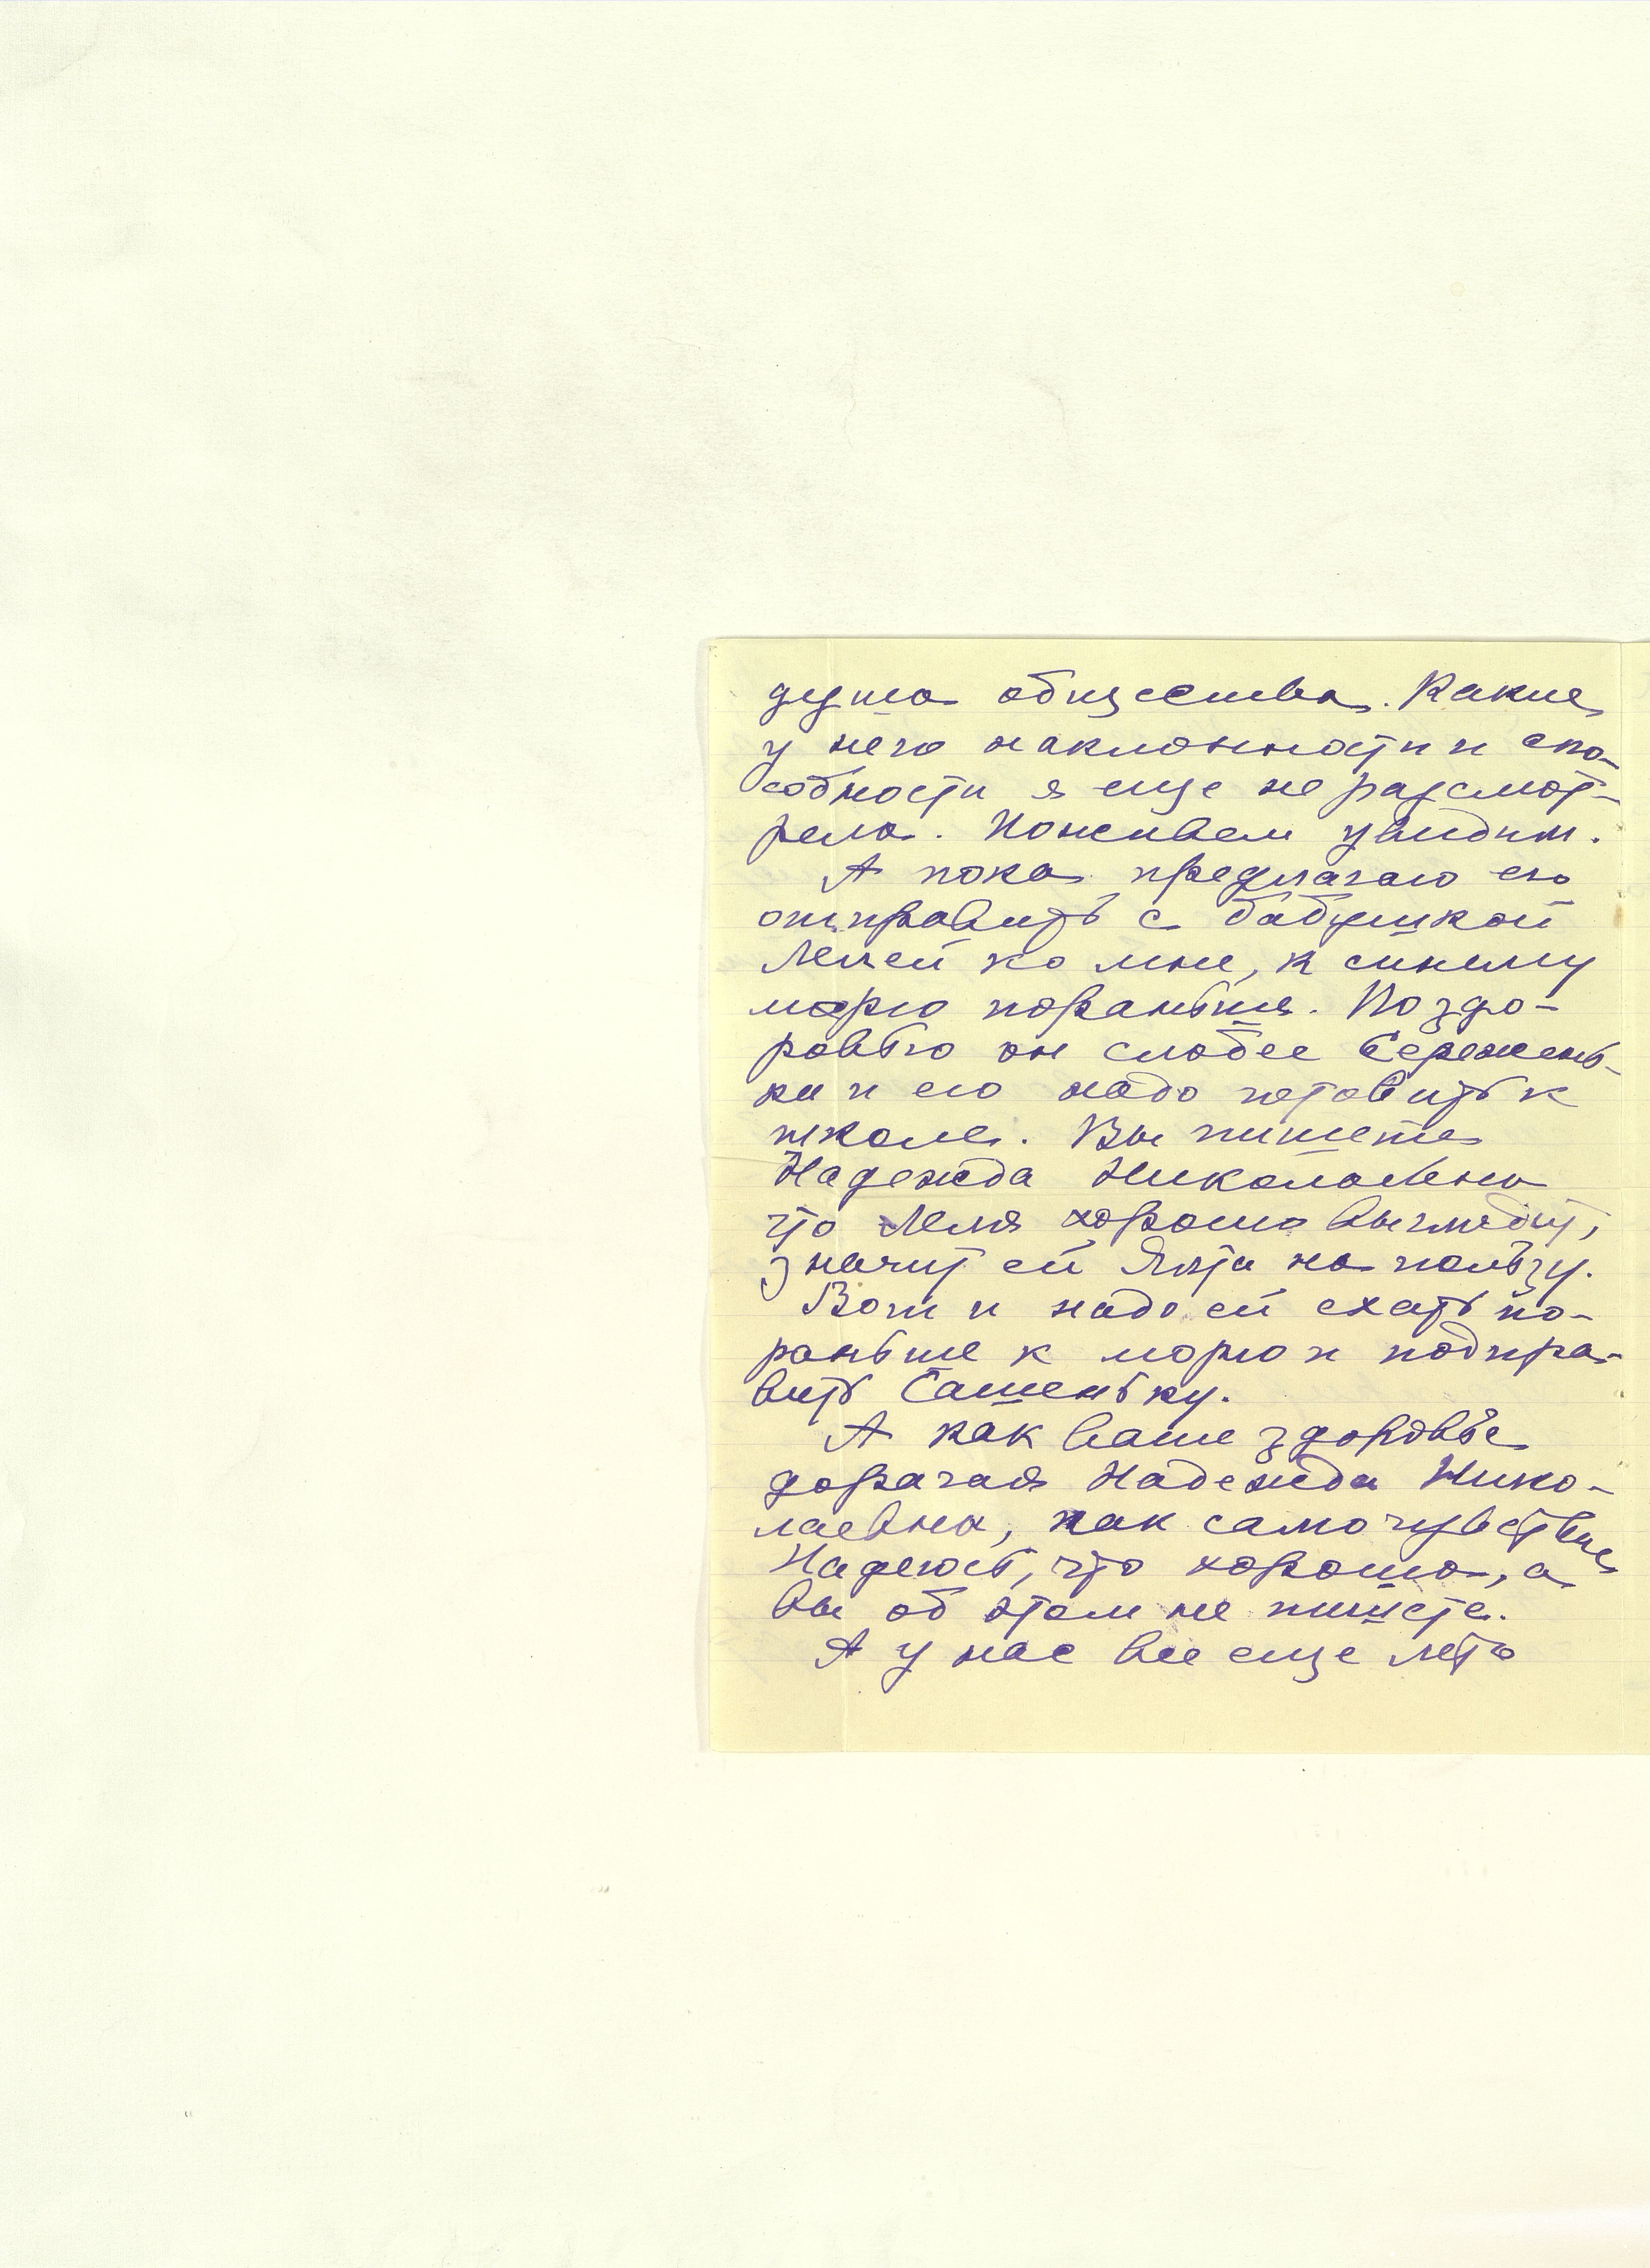 душа общества. Какие
у него наклонности и спо-
собности я еще не рассмот-
рела. Поживем увидим.
А пока предлагаю его
отправить с бабушкой
Лелей ко мне, к синему
морю пораньше. По здо-
ровью он слабее Сережень-
ки и его надо готовить к
школе. Вы пишете
Надежда Николаевна
что Леля хорошо выглядит,
значит ей Ялта на пользу.
Вот и надо ей ехать по-
раньше к морю и подпра-
вить Сашеньку.
А как ваше здоровье
дорогая Надежда Нико-
лаевна, как самочувствие
Надеюсь, что хорошо, а
вы об этом не пишете.
А у нас все еще лето